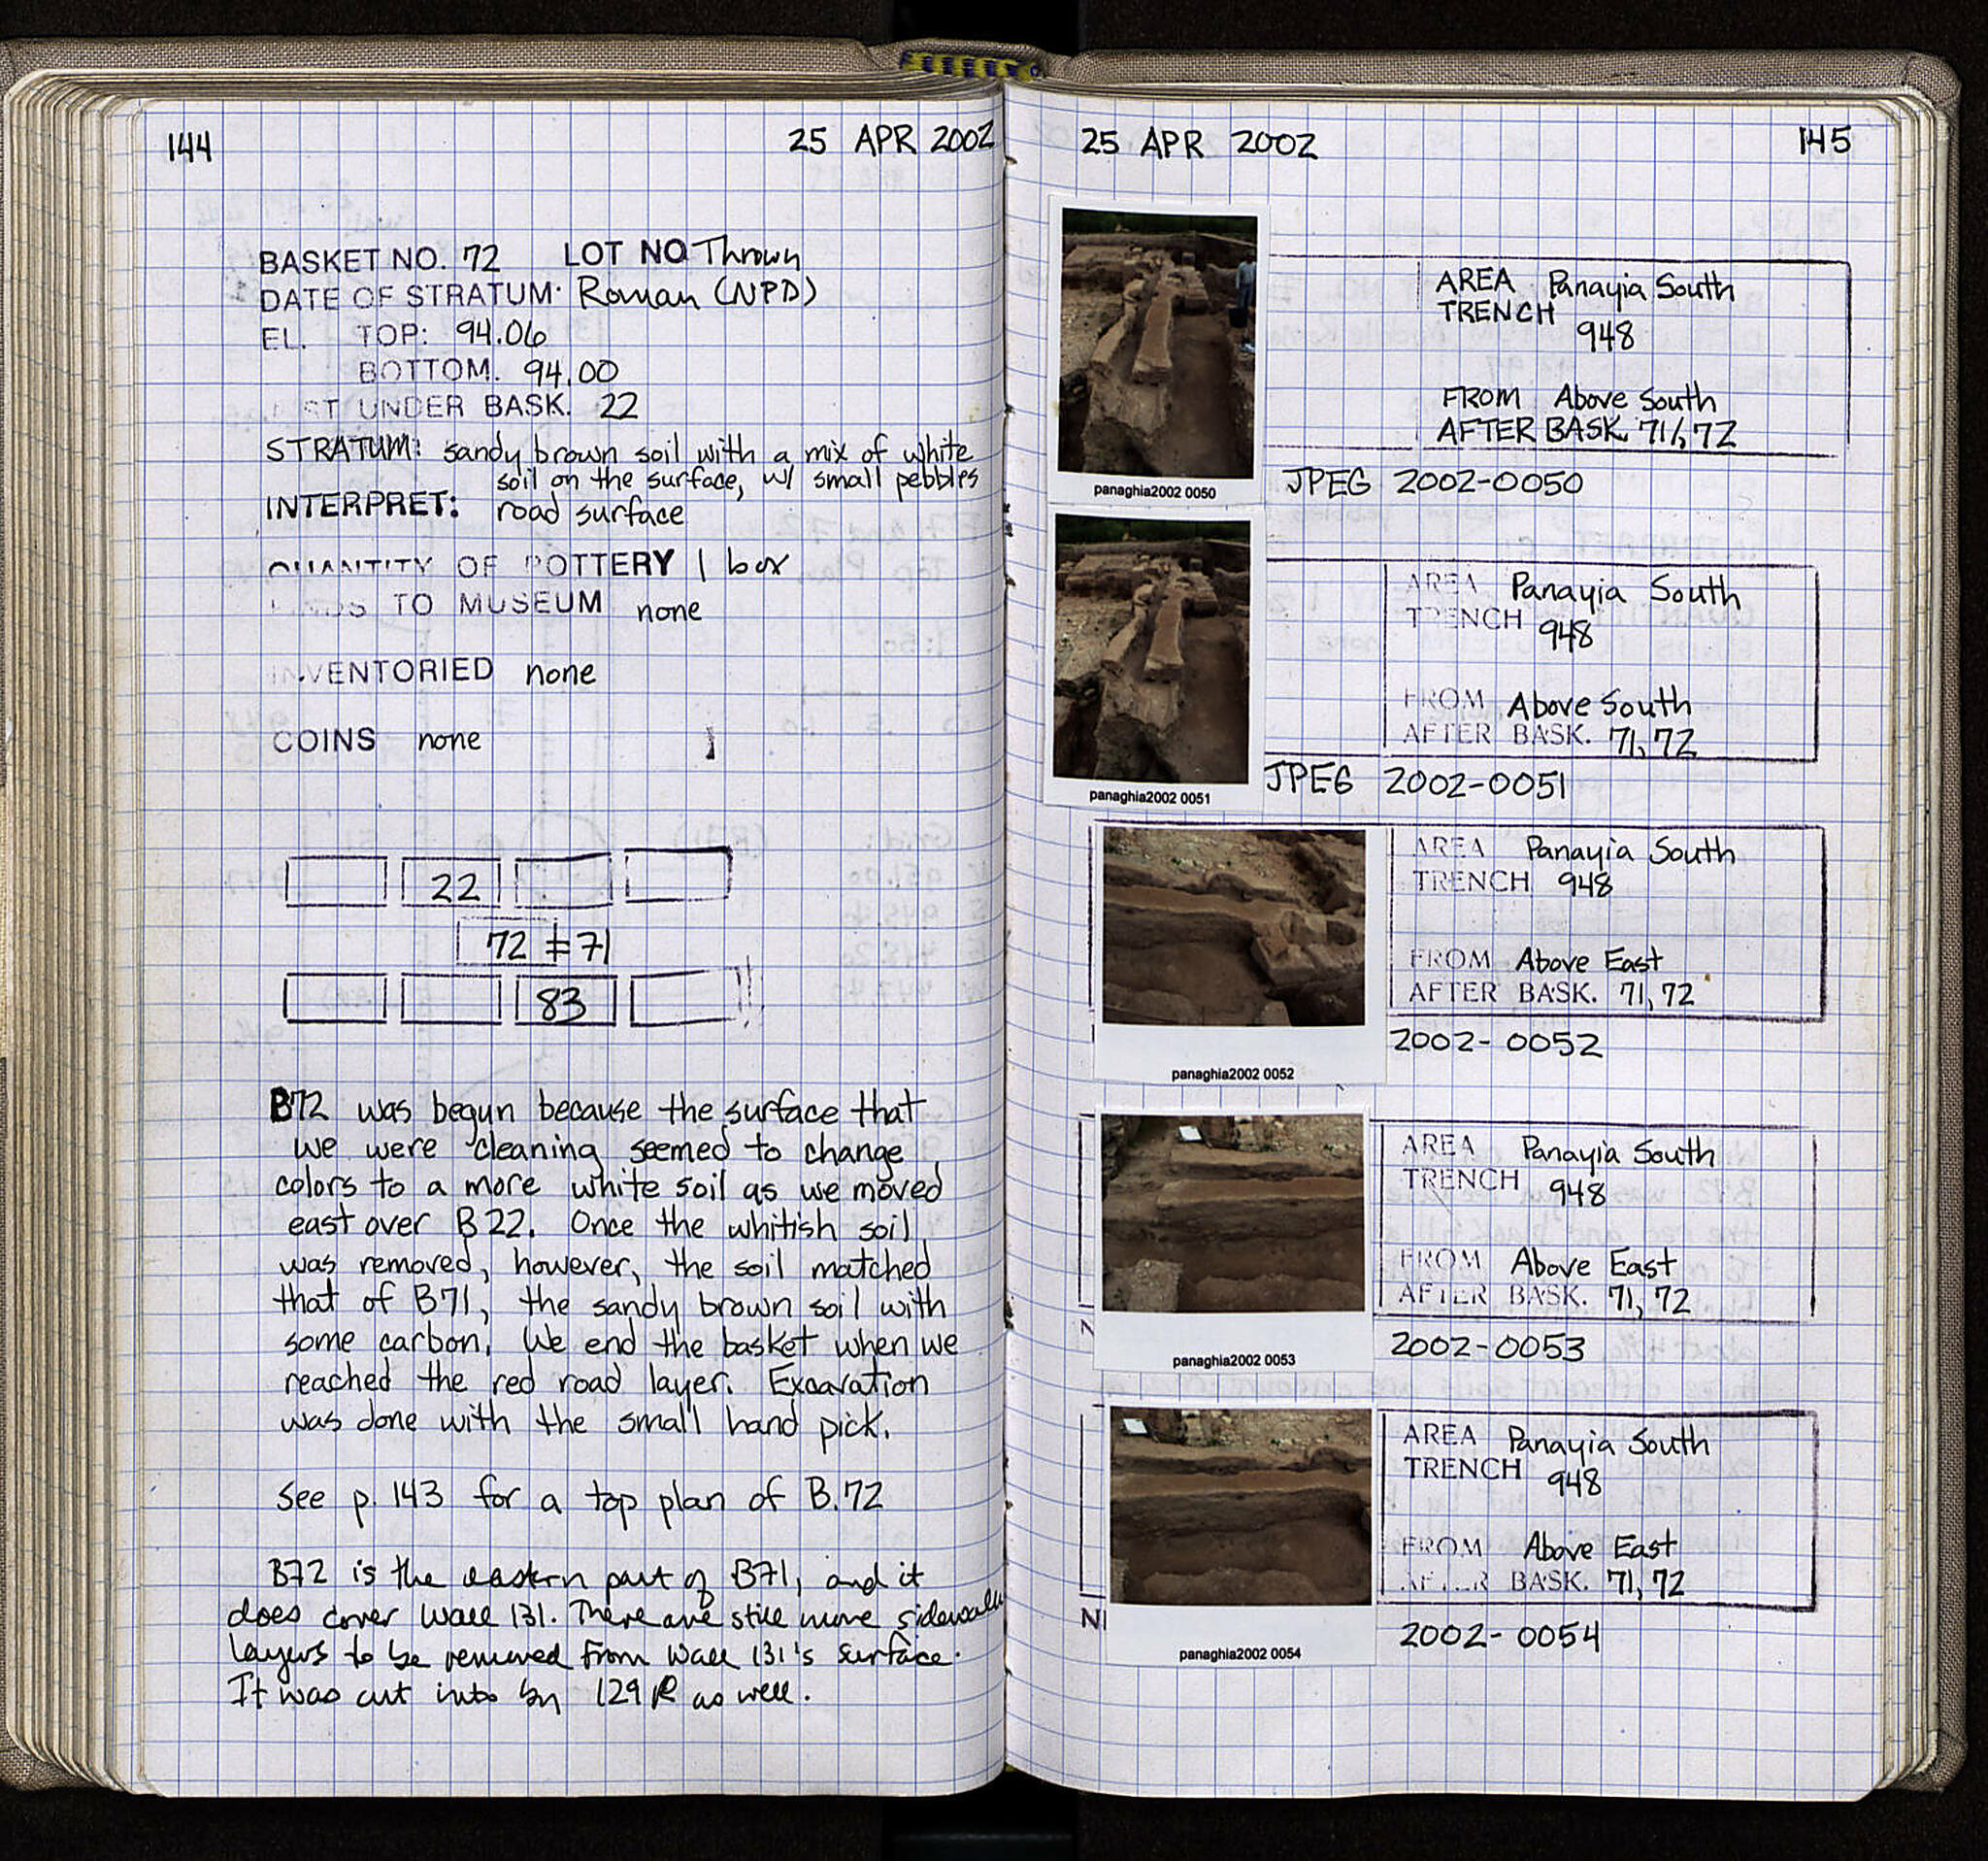 144
25 APR 2002
BASKET NO. 72 LOT NO Thrown
DATE OF STRATUM: Roman (NPD)
EL. TOP: 94.06
BOTTOM. 94.00
UNDER BASK. 22
STRATUM: sandy brown soil with a mix of white
soil on the surface, w/ small pebbles
INTERPRET: road surface
QUANTITY OF POTTERY 1 box
TO MUSEUM none
INVENTORIED none
COINS none
22
72 ‡ 71
83
B72 was begun because the surface that
we were cleaning seemed to change
colors to a more white soil as we moved
east over B22. Once the whitish soil
was removed, however, the soil matched
that of B71, the sandy brown soil with
some carbon. We end the basket when we
reached the red road layer. Excavation
was done with the small hand pick.
See p. 143 for a top plan of B.72
B72 is the eastern part of B71, and it
does cover Wall 131. There are still more sidewalk
layers to be removed from Wall 131's surface.
It was cut into by 129 R as well.
25 APR 2002
145
AREA Panayia South
TRENCH 948
FROM Above South
AFTER BASK 71, 72
JPEG 2002-0050
panaghia2002 0050
AREA Panayia South
TRENCH 948
FROM Above South
AFTER BASK. 71, 72
JPEG 2002-0051
panaghia2002 0051
AREA Panayia South
TRENCH 948
FROM Above East
AFTER BASK. 71, 72
2002-0052
panaghia2002 0052
AREA Panayia South
TRENCH 948
FROM Above East
AFTER BASK. 71, 72
2002-0053
panaghia2002 0053
AREA Panayia South
TRENCH 948
FROM Above East
AFTER BASK. 71, 72
2002-0054
panaghia2002 0054